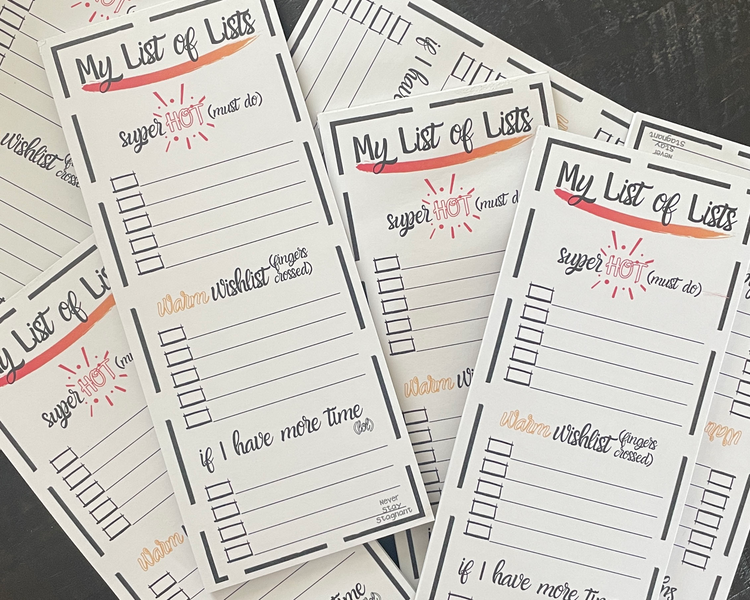 HOT
Wishlist
My List of Lists
super HOT (must do)
Warm wishlist (fingers
crossed)
if I have more time
(lol)
Never
Stay
Stagnant
if I
My List of Lists
super HOT (must
Warm
My List of Lists
super HOT (must do)
Warm wishlist (fingers
crossed)
if I have more
Never
Stay
Stagnant
Warm
List of
super HOT
Warm
time